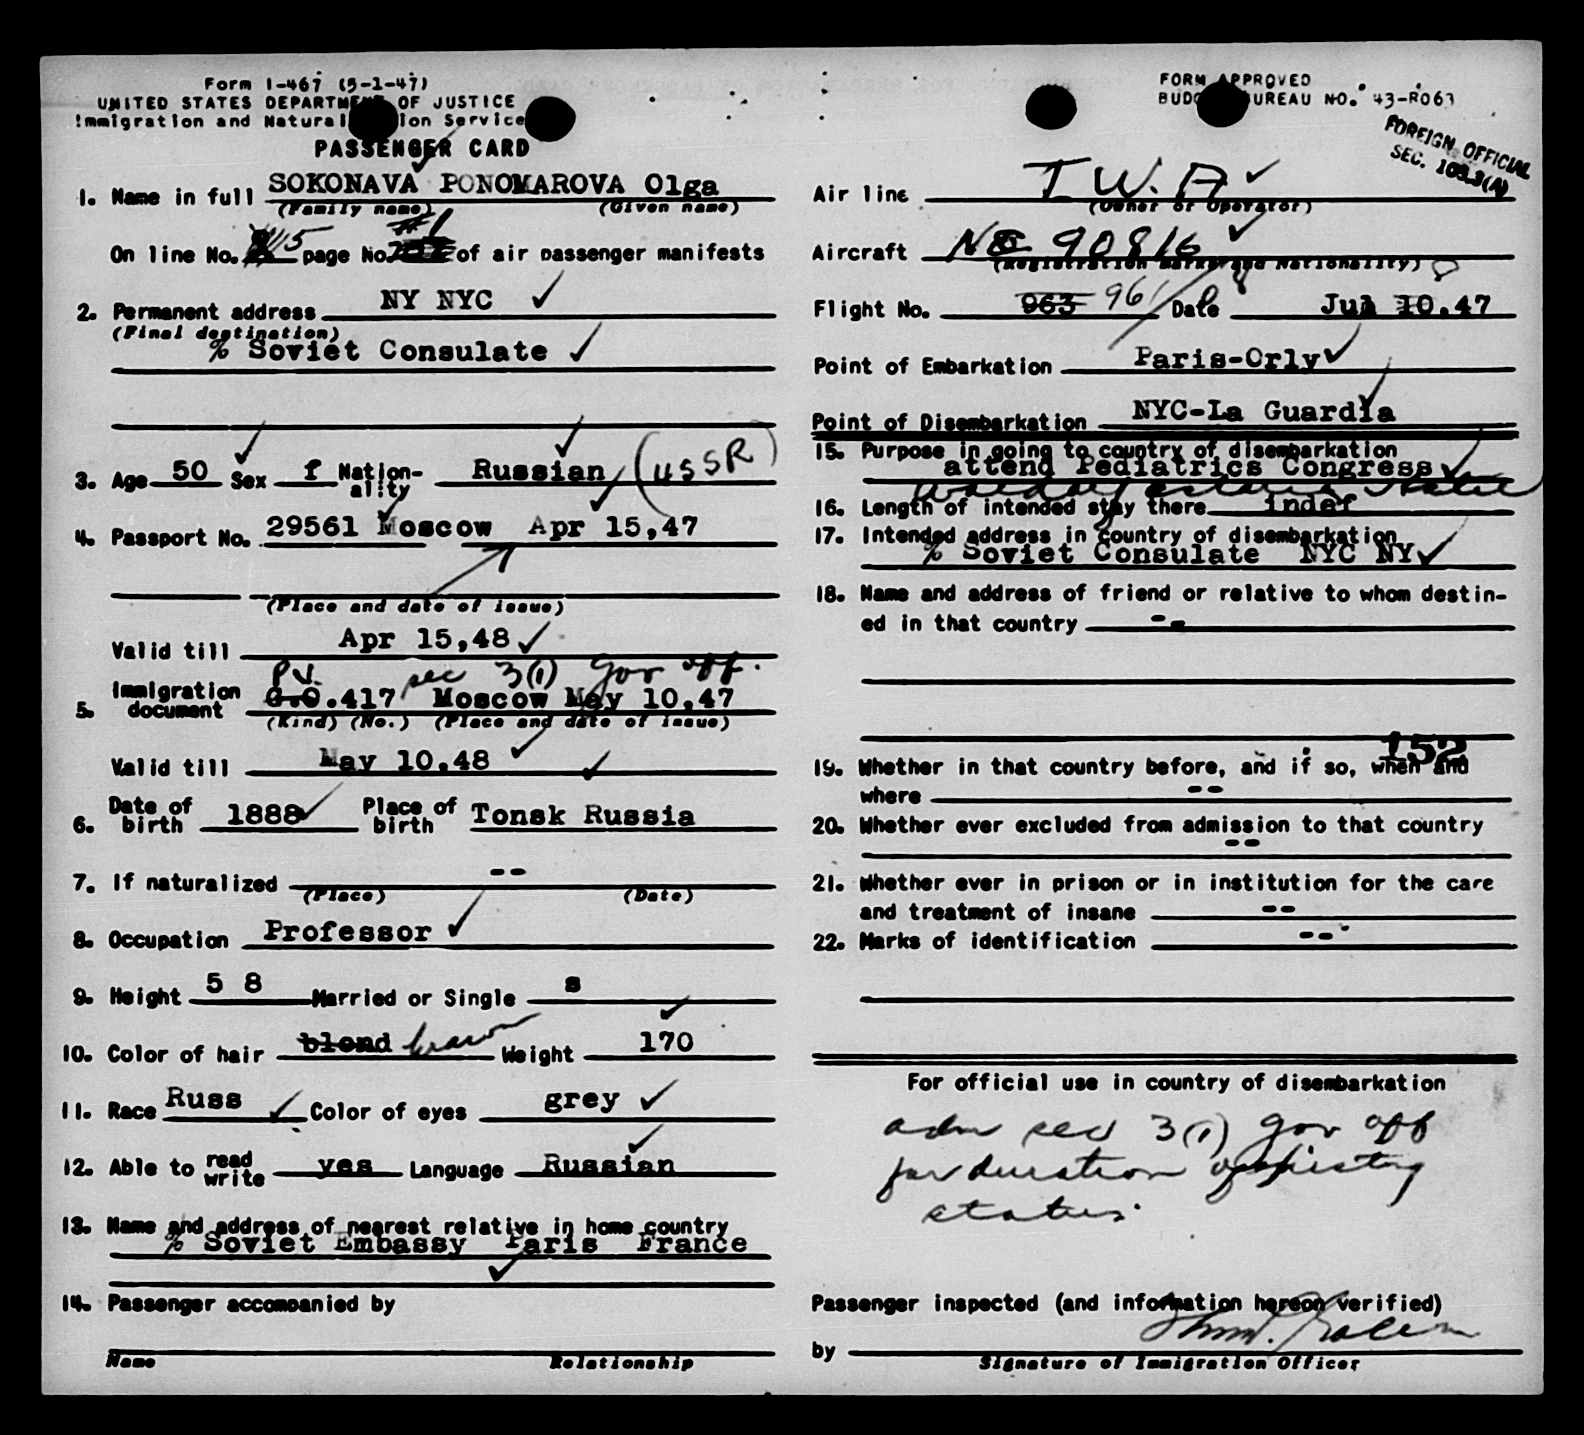 Form I-467 (5-1-47)
UNITED STATES DEPARTMENT OF JUSTICE
Immigration and Naturalization Service
PASSENGER CARD
FORM APPROVED
BUDGET BUREAU NO. 43-R063
FOREIGN OFFICIAL
SEC.
1. Name in full SOKONAVA PONOMAROVA Olga
(Family name) (Given name)
On line No. 5 page No. #1 of air passenger manifests
2. Permanent address NY NYC
(Final destination)
% Soviet Consulate
3. Age 50 Sex f Nation-ality Russian (USSR)
4. Passport No. 29561 Moscow Apr 15,47
(Place and date of issue)
Valid till Apr 15,48
P.V. sec 3(1) gov off.
5. Immigration document .417 Moscow May 10,47
(Kind) (No.) (Place and date of issue)
Valid till May 10,48
6. Date of birth 1888 Place of birth Tonsk Russia
7. If naturalized --
(Place) (Date)
8. Occupation Professor
9. Height 5 8 Married or Single s
10. Color of hair blond brown Weight 170
11. Race Russ Color of eyes grey
12. Able to read write yes Language Russian
13. Name and address of nearest relative in home country
% Soviet Embassy Paris France
14. Passenger accompanied by
Name Relationship
Air line T.W.A
(Owner or Operator)
Aircraft NC 90816
(Registration marks and Nationality)
Flight No. 963 961 Date Jul 10,47
8
Point of Embarkation Paris-Orly
Point of Disembarkation NYC-La Guardia
15. Purpose in going to country of disembarkation
attend Pediatrics Congress
16. Length of intended stay there indef
17. Intended address in country of disembarkation
% Soviet Consulate NYC NY
18. Name and address of friend or relative to whom destin-
ed in that country --
152
19. Whether in that country before, and if so, when and
where --
20. Whether ever excluded from admission to that country
--
21. Whether ever in prison or in institution for the care
and treatment of insane --
22. Marks of identification --
For official use in country of disembarkation
adm sec 3(1) gov off
for duration of
status.
Passenger inspected (and information hereon verified)
by
Signature of Immigration Officer